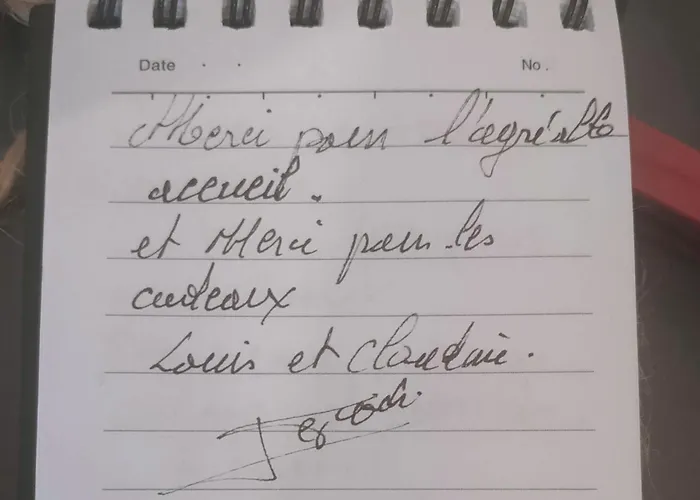 Date . . No.
Merci pour l'agréable
accueil.
et Merci pour les
cadeaux
Louis et Claudine.